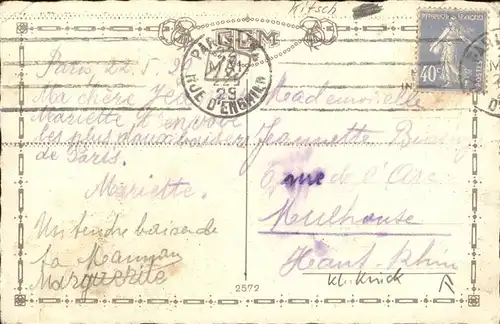 Kitsch
CDM
PARIS
RUE D'ENGHIEN
40c
Paris, 22.5.29
Ma chère Jea
Mariette t'envoie
les plus doux baisers
de Paris.
Mariette.
Un tendre baiser de
ta Maman
Marguerite
Mademoiselle
Jeannette
6 rue de l'Arc
Mulhouse
Haut-Rhin
kl. Knick
2572